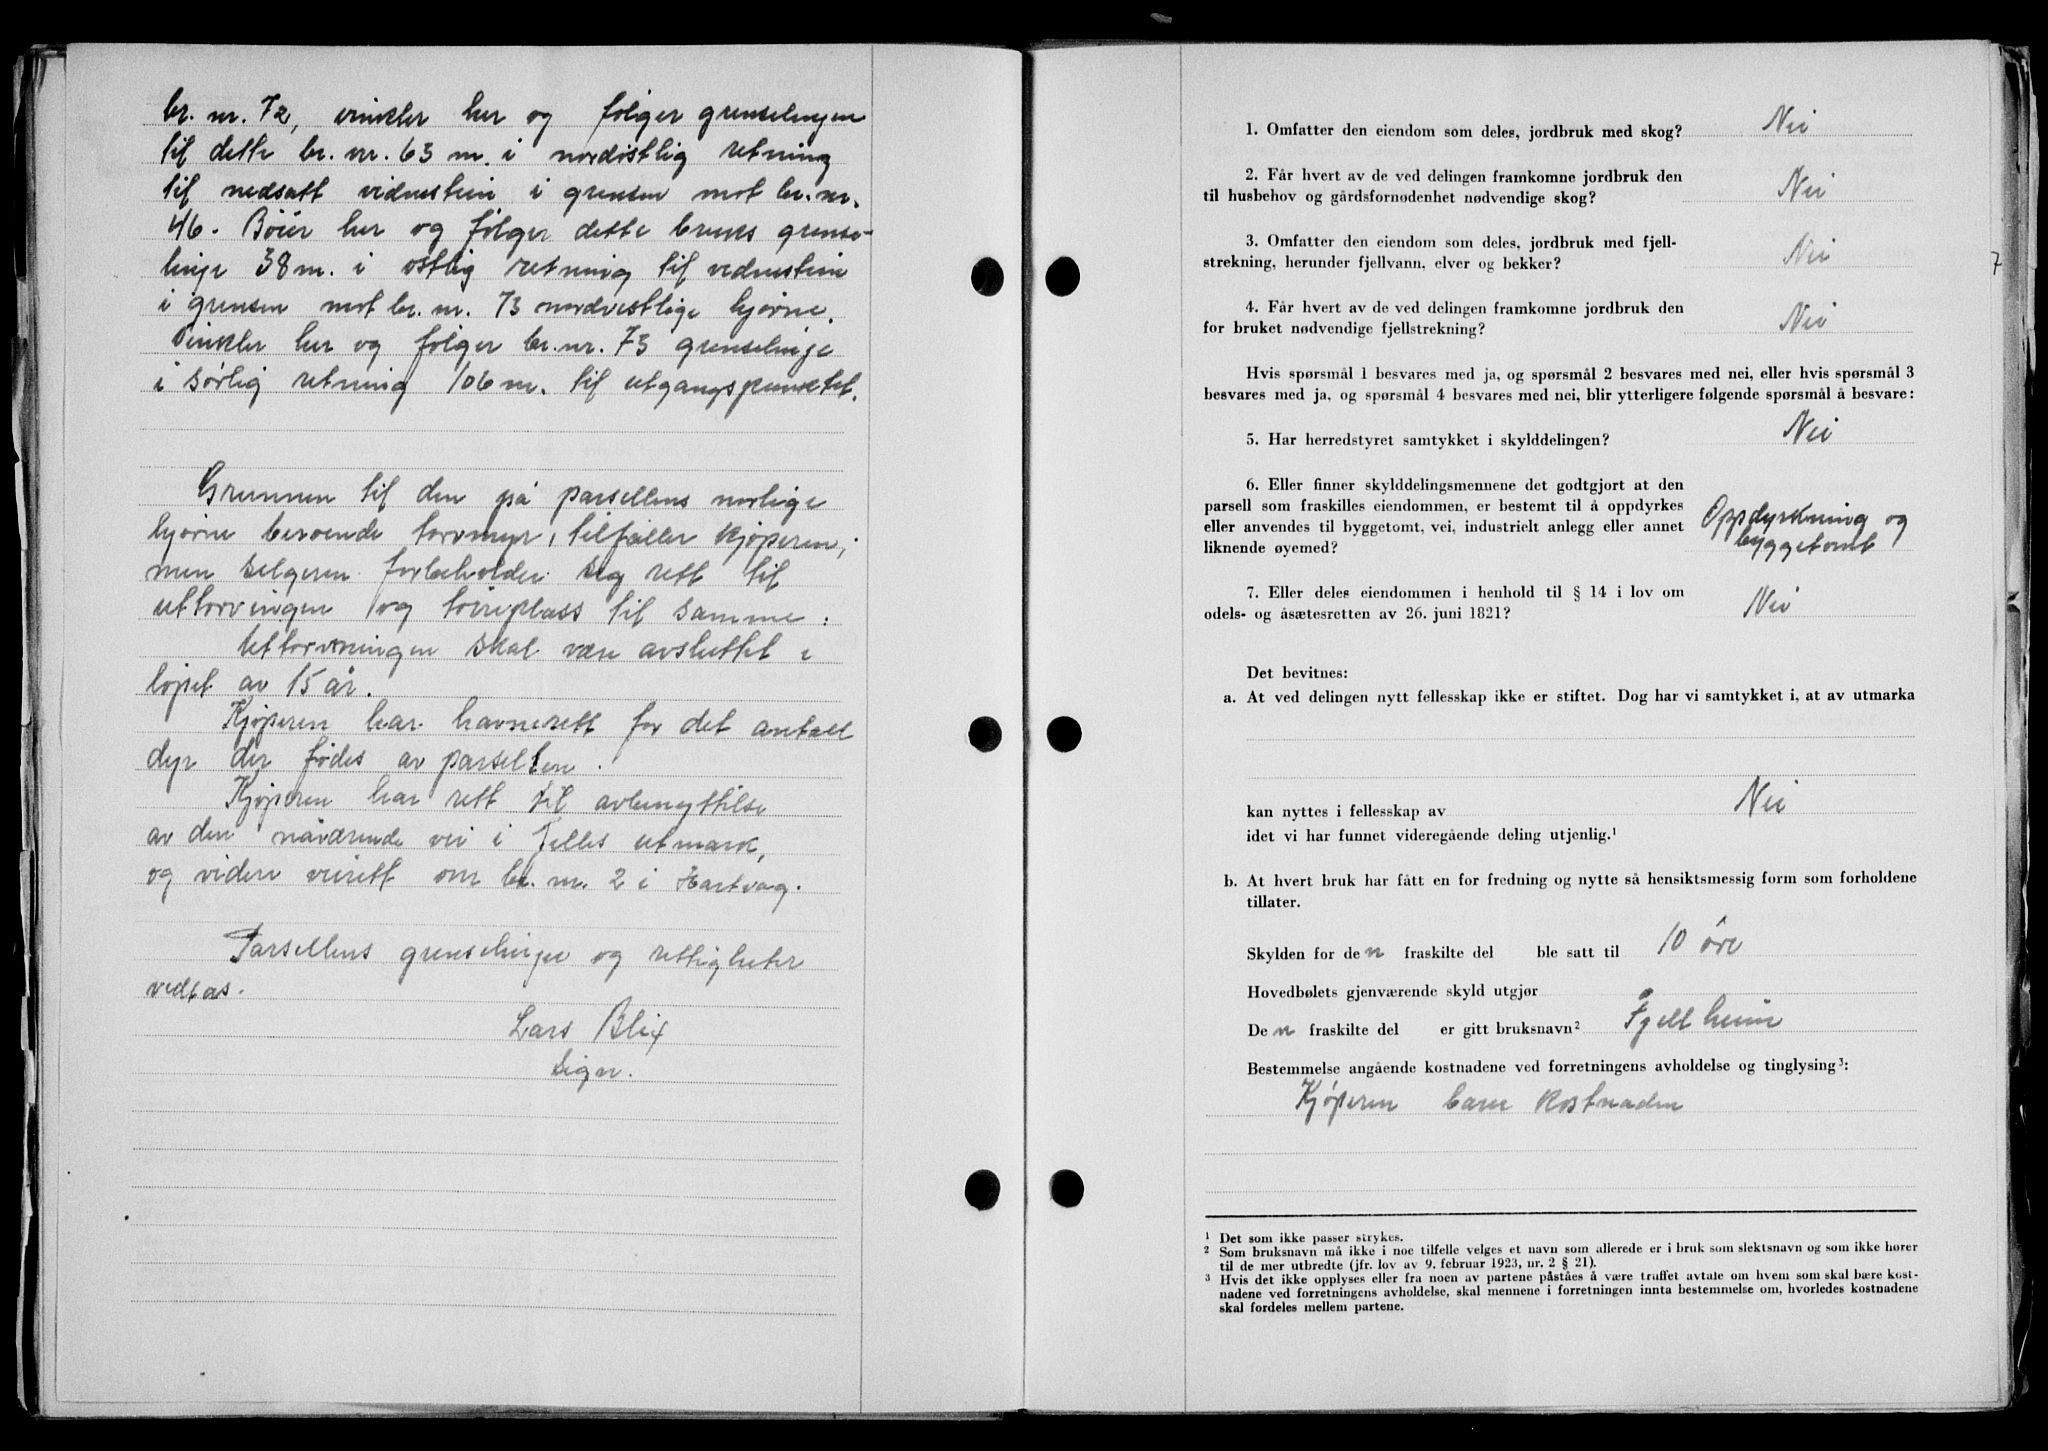 br. nr. 72, vinkler her og følger grenselinjen
til dette br. nr. 63 m. i nordøstlig retning
til nedsatt vidnestein i grensen mot br. nr.
46. Bøier her og følger dette bruks grense-
linje 38 m. i østlig retning til vidnestein
i grensen mot br. nr. 73 nordvestlige hjørne.
Vinkler her og følger br. nr. 73 grenselinje
i sørlig retning 106 m. til utgangspunktet.
Grunnen til den på parsellens norlige
hjørne beroende torvmyr, tilfaller kjøperen,
men selgeren forbeholder seg rett til
uttorvingen og tørreplass til samme.
Uttorvningen skal være avsluttet i
løpet av 15 år.
Kjøperen har havnerett for det antall
dyr der fødes av parsellen.
Kjøperen har rett til avbenyttelse
av den nåværende vei i felles utmark,
og videre veirett om br. nr. 2 i Hartvag.
Parsellens grenselinjer og rettigheter
vedtas.
Lars Blix
sign.
7
1. Omfatter den eiendom som deles, jordbruk med skog? Nei
2. Får hvert av de ved delingen framkomne jordbruk den
til husbehov og gårdsfornødenhet nødvendige skog? Nei
3. Omfatter den eiendom som deles, jordbruk med fjell-
strekning, herunder fjellvann, elver og bekker? Nei
4. Får hvert av de ved delingen framkomne jordbruk den
for bruket nødvendige fjellstrekning? Nei
Hvis spørsmål 1 besvares med ja, og spørsmål 2 besvares med nei, eller hvis spørsmål 3
besvares med ja, og spørsmål 4 besvares med nei, blir ytterligere følgende spørsmål å besvare:
5. Har herredstyret samtykket i skylddelingen? Nei
6. Eller finner skylddelingsmennene det godtgjort at den
parsell som fraskilles eiendommen, er bestemt til å oppdyrkes
eller anvendes til byggetomt, vei, industrielt anlegg eller annet
liknende øyemed? Oppdyrkning og
byggetomt
7. Eller deles eiendommen i henhold til § 14 i lov om
odels- og åsætesretten av 26. juni 1821? Nei
Det bevitnes:
a. At ved delingen nytt fellesskap ikke er stiftet. Dog har vi samtykket i, at av utmarka
kan nyttes i fellesskap av Nei
idet vi har funnet videregående deling utjenlig.¹
b. At hvert bruk har fått en for fredning og nytte så hensiktsmessig form som forholdene
tillater.
Skylden for den fraskilte del ble satt til 10 øre
Hovedbølets gjenværende skyld utgjør
Den fraskilte del er gitt bruksnavn² Fjellheim
Bestemmelse angående kostnadene ved forretningens avholdelse og tinglysing³:
Kjøperen bærer kostnaden
¹ Det som ikke passer strykes.
² Som bruksnavn må ikke i noe tilfelle velges et navn som allerede er i bruk som slektsnavn og som ikke hører
til de mer utbredte (jfr. lov av 9. februar 1923, nr. 2 § 21).
³ Hvis det ikke opplyses eller fra noen av partene påståes å være truffet avtale om hvem som skal bære kost-
nadene ved forretningens avholdelse, skal mennene i forretningen innta bestemmelse om, hvorledes kostnadene
skal fordeles mellem partene.